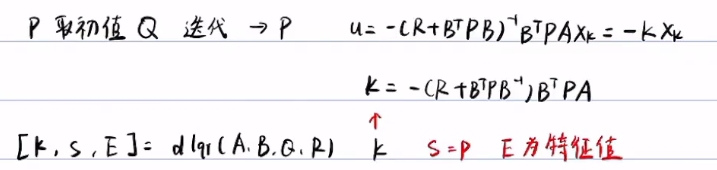 P 取初值 Q 迭代 → P u = -(R+BᵀPB)⁻¹BᵀPAXₖ = -kXₖ
k = -(R+BᵀPB⁻¹)BᵀPA
↑
[k, S, E] = dlqr(A.B.Q.R) k S=P E为特征值